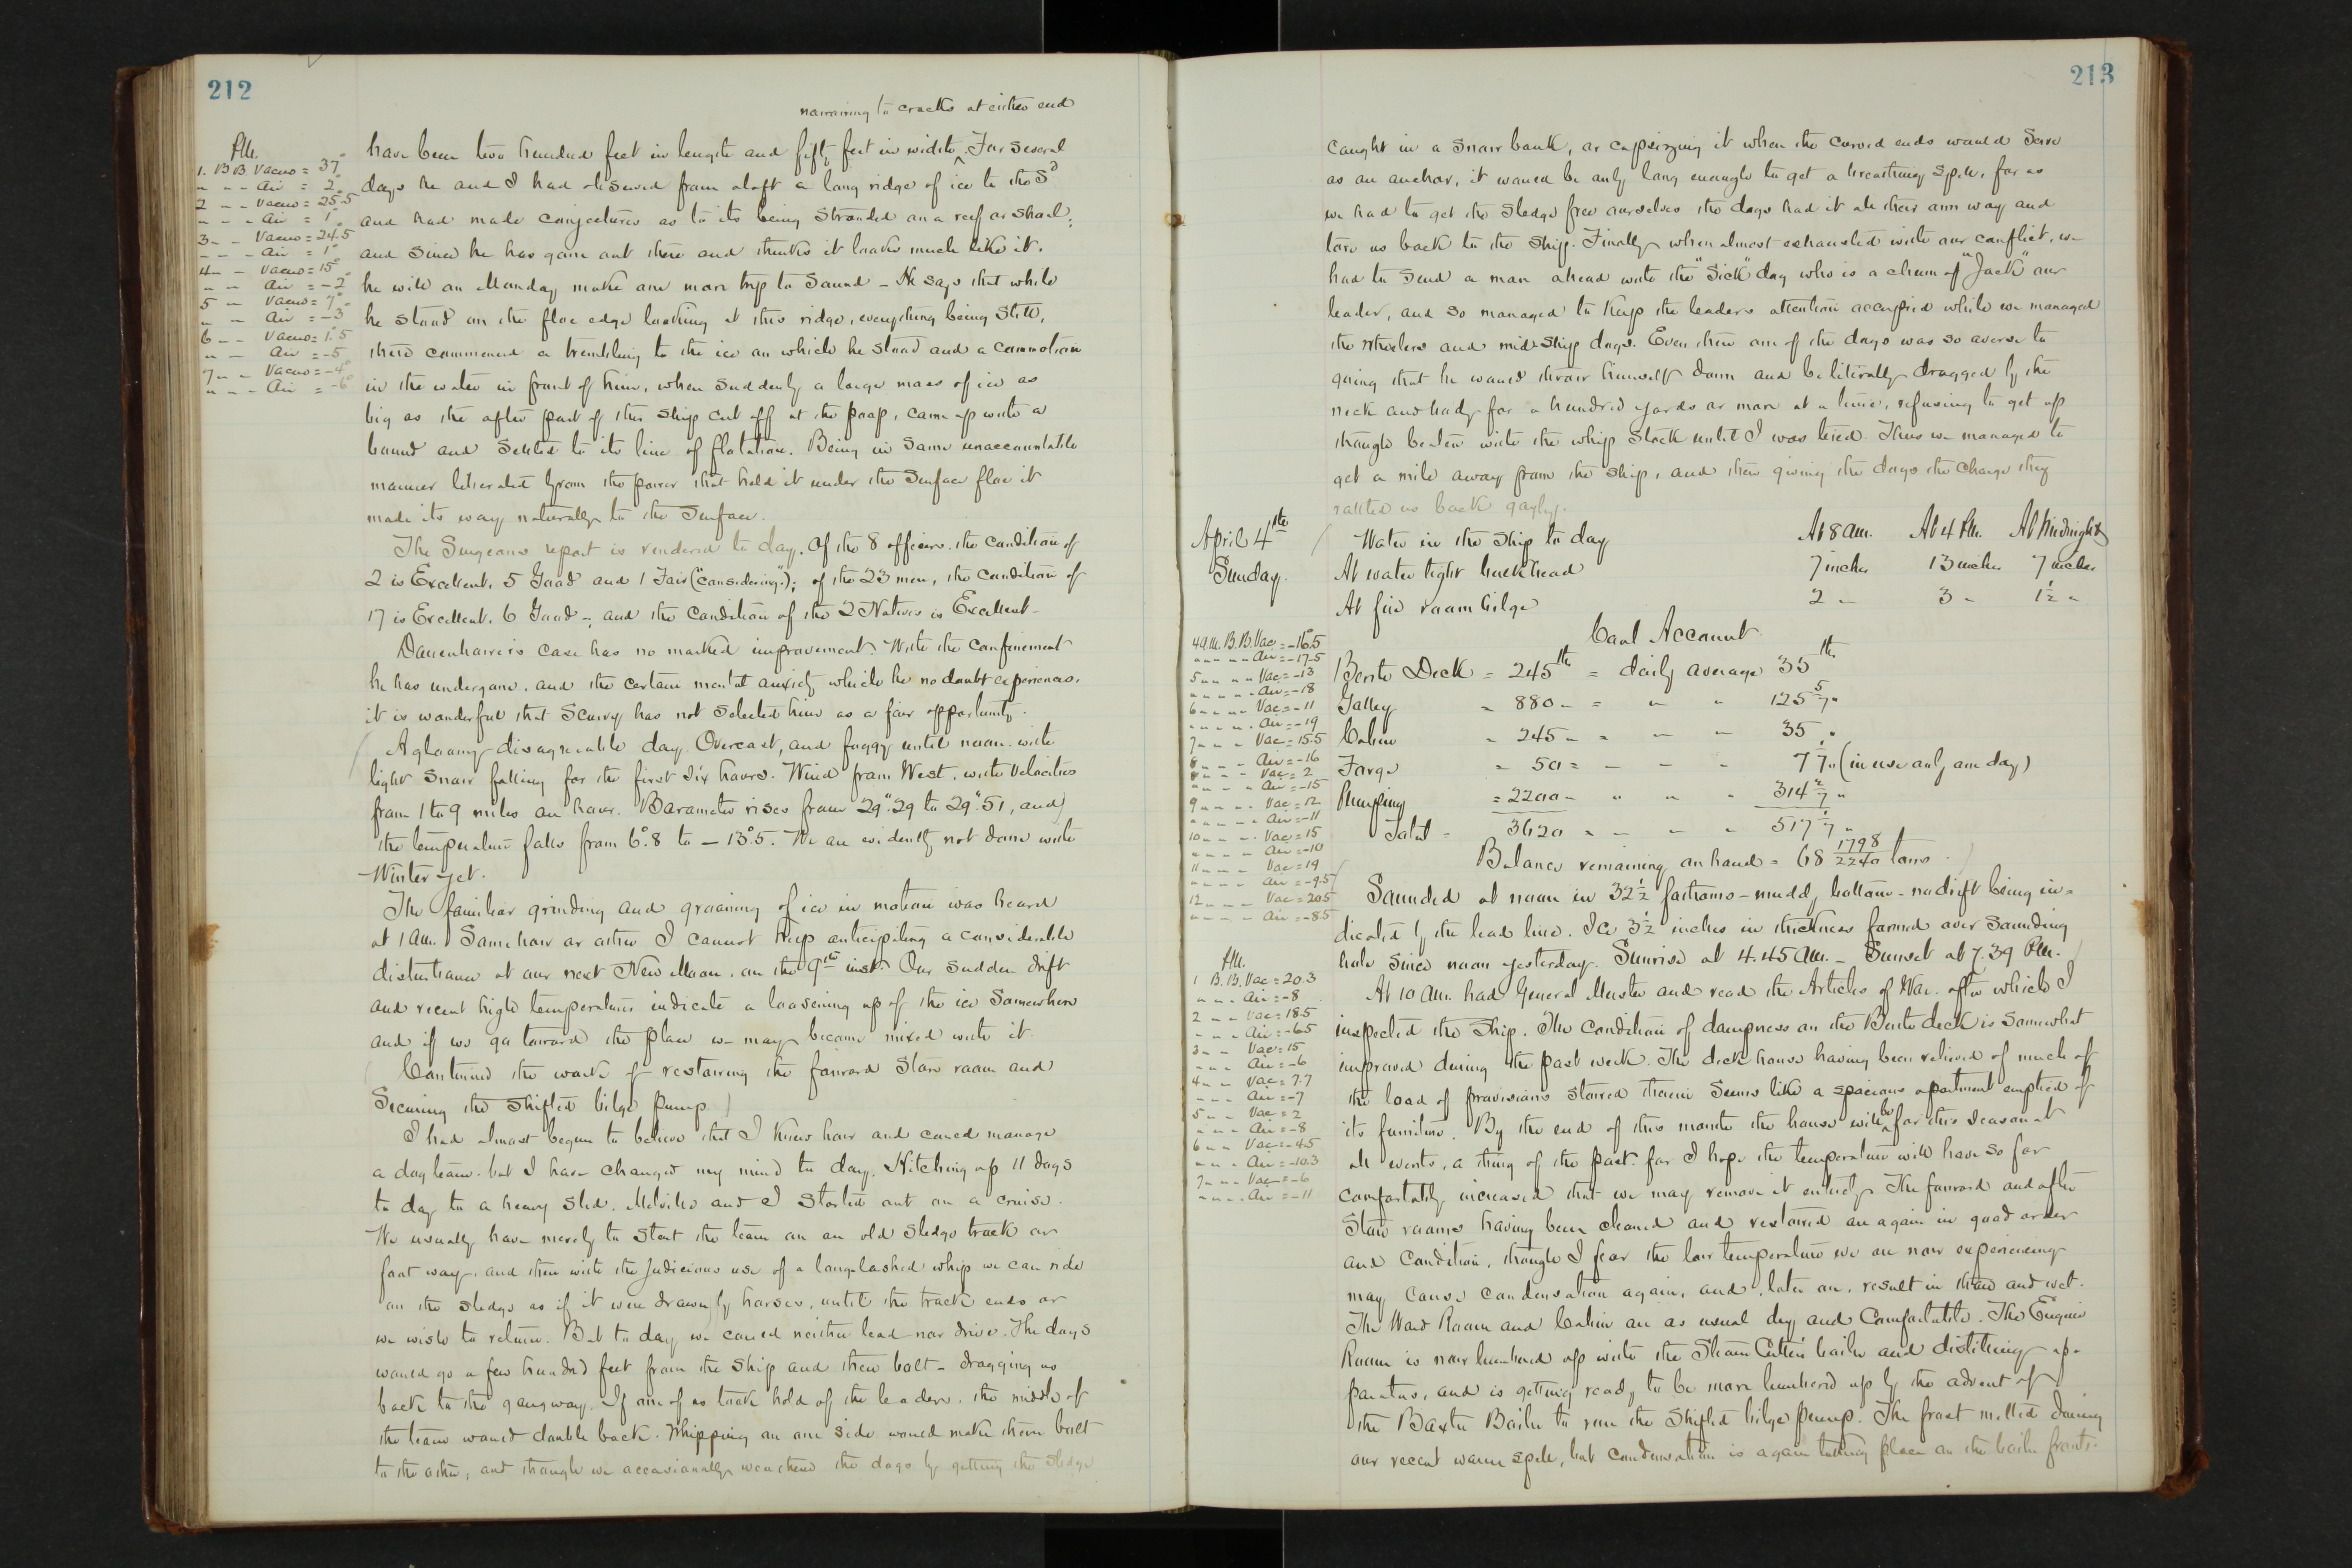 212
narrowing to cracks at either end
P.M.
1. B B Vacuo = 37°
" - - Air = 2°
2 - - Vacuo = 25.5
- - - Air = 1°
3 - - Vacuo = 24.5
- - - Air = 1°
4 - - Vacuo = 15°
" - Air = -2°
5 - Vacuo = 7°
" - Air = -3°
6 - - Vacuo = 1°.5
" - Air = -5°
7 - - Vacuo = -4°
" - - Air = -6°
have been two hundred feet in length and fifty feet in width ^ For several
days he and I had observed from aloft a long ridge of ice to the Sd
and had made conjectures as to its being stranded on a reef or shoal;
and since he has gone out there and thinks it looks much like it.
he will on Monday make one more trip to sound - He says that while
he stood on the floe edge looking at this ridge, everything being still,
there commenced a trembling to the ice on which he stood and a commotion
in the water in front of him, when suddenly a large mass of ice as
big as the after part of this ship cut off at the poop, came up with a
bound and settled to its line of flotation. Being in some unaccountable
manner liberated from the power that held it under the surface floe it
made its way naturally to the surface.
The Surgeons report is rendered to day. Of the 8 officers, the condition of
2 is Excellent, 5 Good and 1 Fair ("considering"); of the 23 men, the condition of
17 is Excellent, 6 Good -; and the condition of the 2 Natives is Excellent -
Danenhower's case has no marked improvement. With the confinement
he has undergone, and the certain mental anxiety which he no doubt experiences,
it is wonderful that Scurvy has not selected him as a fair opportunity.
A gloomy disagreeable day. Overcast, and foggy until noon. with
light snow falling for the first six hours. Wind from West, with velocities
from 1 to 9 miles an hour. Barometer rises from 29".29 to 29".51, and
the temperature falls from 6°.8 to - 13°.5. We are evidently not done with
Winter yet.
The familiar grinding and groaning of ice in motion was heard
at 1 A.M. Somehow or other I cannot help anticipating a considerable
disturbance at our next New Moon, on the 9th inst. Our sudden drift
and recent high temperatures indicate a loosening up of the ice somewhere
and if we go toward the place we may become mixed with it
Continued the work of restowing the forward store room and
securing the shifted bilge pump
I had almost begun to believe that I knew how and could manage
a dog team, but I have changed my mind to day. Hitching up 11 dogs
to day to a heavy sled, Melville and I started out on a cruise.
We usually have merely to start the team on an old sledge track or
foot way, and then with the judicious use of a long-lashed whip we can ride
on the sledge as if it were drawn by horses, until the track ends or
we wish to return. But to day we could neither lead nor drive. The dogs
would go a few hundred feet from the ship and then bolt - dragging us
back to the gangway. If one of us took hold of the leaders, the middle of
the team would double back. Whipping on one side would make them bolt
to the other, and though we occasionally weakened the dogs by getting the sledge
213
caught in a snow bank, or capsizing it when the curved ends would serve
as an anchor, it would be only long enough to get a breathing spell, for as
we had to get the sledge free ourselves the dogs had it all their own way and
tore us back to the ship. Finally when almost exhausted with our conflict, we
had to send a man ahead with the "Sick" dog who is a chum of "Jack" our
leader, and so managed to keep the leaders attention occupied while we managed
the wheelers and midship dogs. Even then one of the dogs was so averse to
going that he would throw himself down and be literally dragged by the
neck and body for a hundred yards or more at a time, refusing to get up
though beaten with the whip stock until I was tired. Thus we managed to
get a mile away from the ship, and then giving the dogs the charge they
rattled us back gayly.
April 4th
Sunday.
Water in the ship to day At 8 A.M. At 4 P.M. At Midnight
At water tight bulkhead 7 inches 13 inches 7 inches
At fire room bilge 2 " 3 " 1½ "
Coal Account
Berth Deck = 245 lbs = daily average 35 lbs
Galley = 880 " = " " 125 5/7 "
Cabin = 245 " = " " 35 "
Forge = 50 = " " " 7 1/7 " (in use only one day)
Pumping = 2200 " " " " 314 2/7 "
Total = 3620 " " " " 517 1/7 "
Balance remaining on hand = 68 1798/2240 tons
4 A.M. B.B. Vac = -16°.5
" " " " Air = -17.5
5 " " " Vac = -13
" " " " Air = -18
6 " " " Vac = -11
" " " " Air = -19
7 " " " Vac = 15.5
" " " Air = -16
8 " " " Vac = 2
" " " " Air = -15
9 " " " Vac = 12
" " " " Air = -11
10 " " " Vac = 15
" " " " Air = -10
11 " " " Vac = 19
" " " " Air = -9.5
12 " " " Vac = 20.5
" " " " Air = -8.5
P.M.
1 B.B. Vac = 20.3
" " " Air = -8
2 " " Vac = 18.5
" " " Air = -6.5
3 " " Vac = 15
" " " Air = -6
4 " " Vac = 7.7
" " " Air = -7
5 " " Vac = 2
" " " Air = -8
6 " " Vac = -4.5
" " " Air = -10.3
7 " " Vac = -6
" " " Air = -11
Sounded at noon in 32½ fathoms - muddy bottom - no drift being in=
dicated by the lead line. Ice 3½ inches in thickness formed over sounding
hole since noon yesterday. Sunrise at 4.45 A.M. - Sunset at 7.39 P.M.
At 10 A.M. had General Muster and read the Articles of War. after which I
inspected the ship. The condition of dampness on the Berth deck is somewhat
improved during the past week. The deck house having been relieved of much of
the load of provisions stowed therein seems like a spacious apartment emptied of
its furniture. By the end of this month the house will ^be for this season at
all events, a thing of the past. for I hope the temperature will have so far
comfortably increased that we may remove it entirely. The forward and after
store rooms having been cleaned and restowed are again in good order
and condition, though I fear the low temperature we are now experiencing
may cause condensation again, and, later on, result in thaw and wet.
The Ward Room and Cabin are as usual dry and comfortable. The Engine
Room is now lumbered up with the Steam Cutter's boiler and distilling ap=
paratus, and is getting ready to be more lumbered up by the advent of
the Baxter Boiler to run the shifted bilge pump. The frost melted during
our recent warm spell, but condensation is again taking place on the boiler fronts.